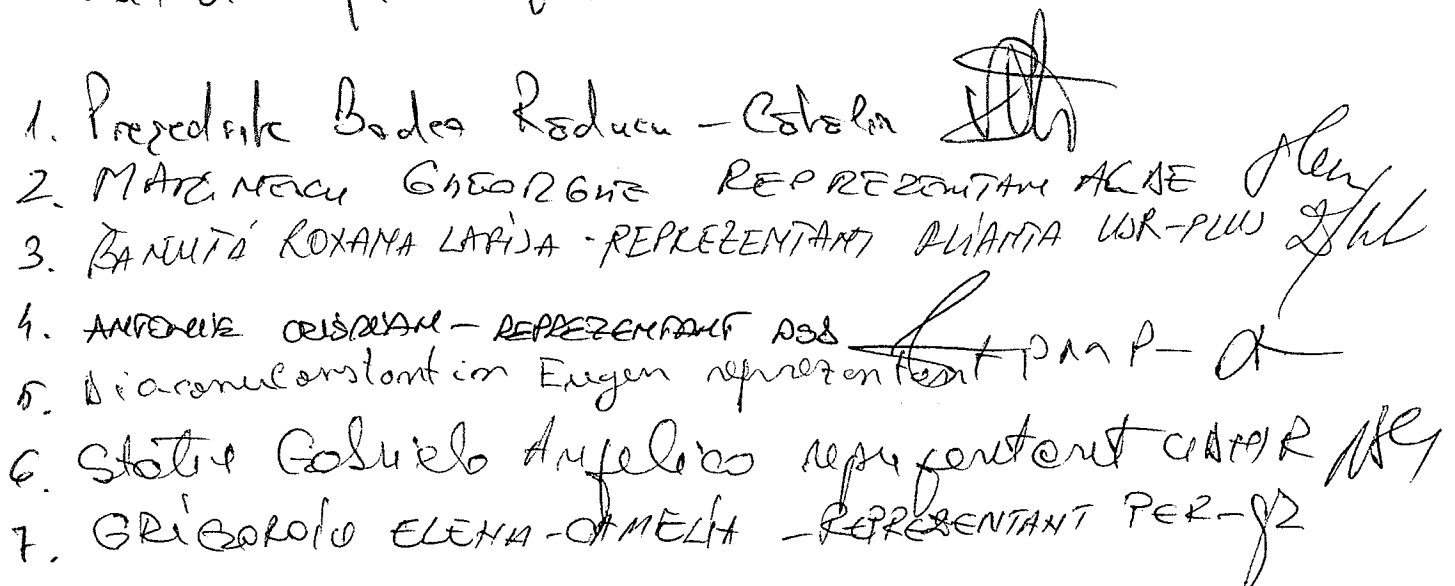 1. Președinte Badea Raducu - Catalin
2. GHEORGHE REPREZENTANT
3. BANUTĂ ROXANA LARISA - REPREZENTANT ALIANTA USR-PLUS
4. ANTONIE CRISTIAN - REPREZENTANT PSD
5. Diaconu Constantin Eugen reprezentant PMP -
6. Statie Gabriela Angelica reprezentant UDMR
7. GRIGOROIU ELENA-CAMELIA - REPREZENTANT PER -